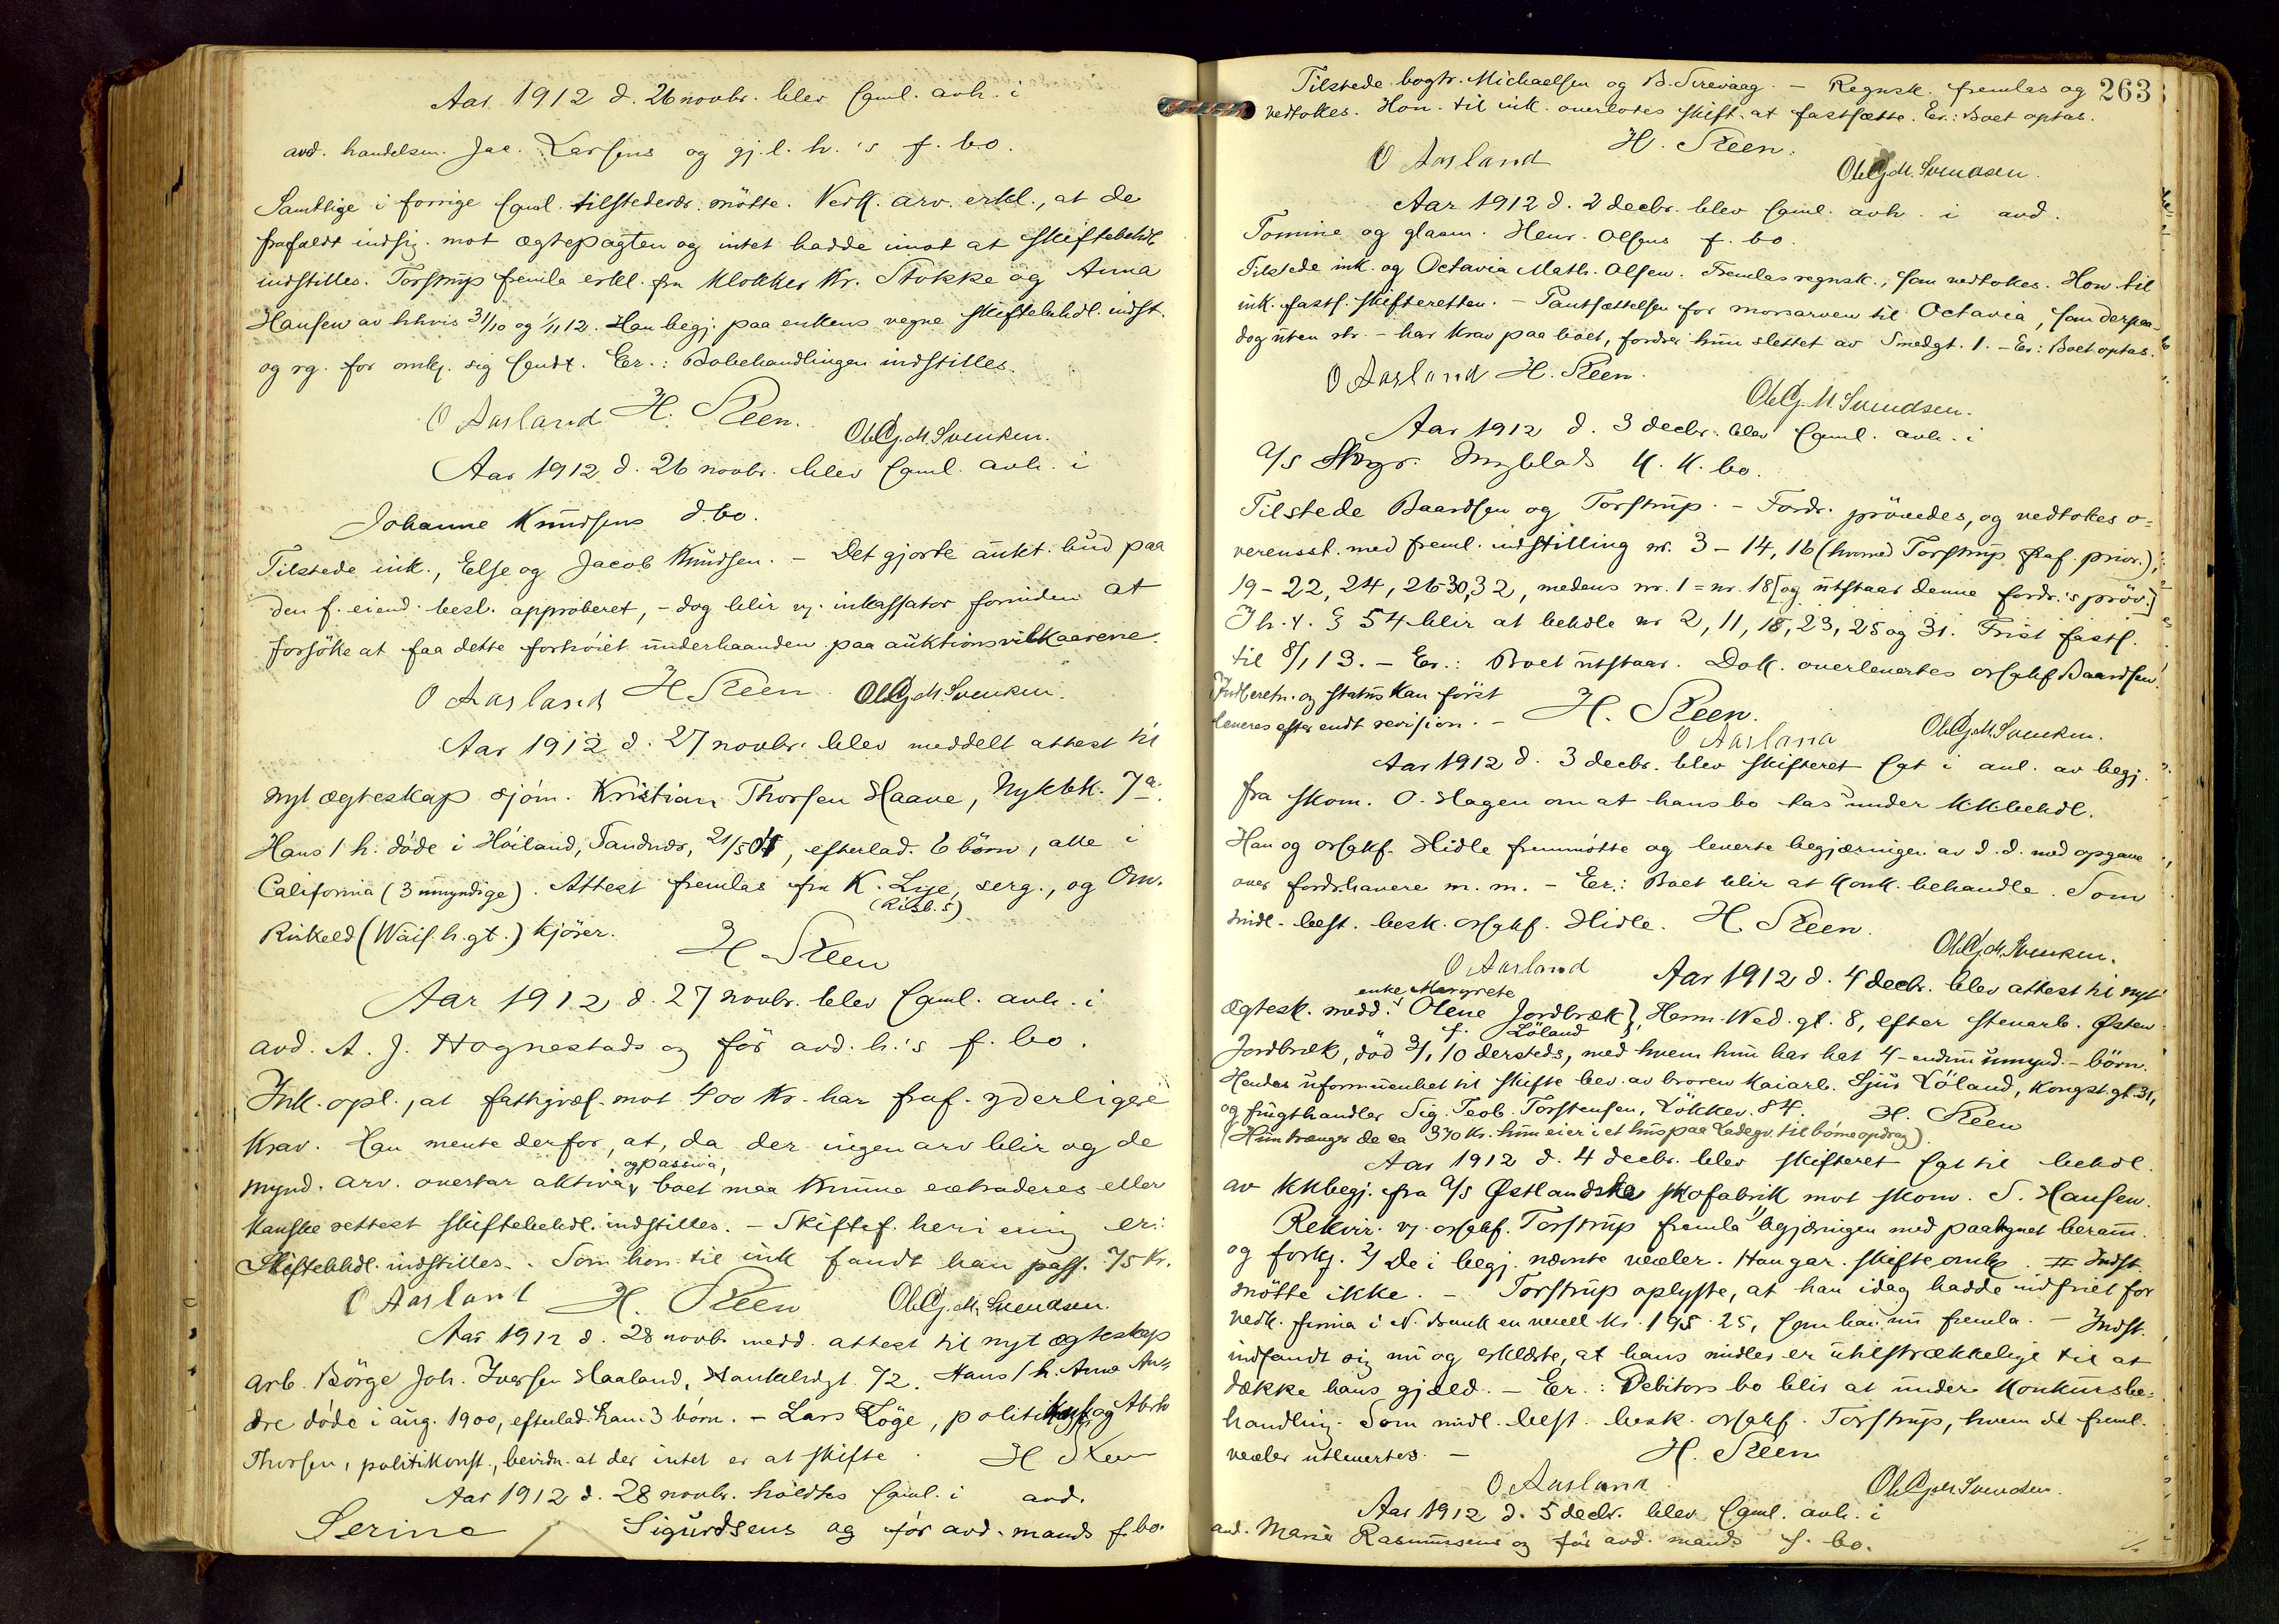 Aar 1912 d. 26 novbr. blev saml. avh. i
avd. handelsm. Jac. Larsens og gj.l. h.'s f. bo.
Samtlige i forrige saml. tilstedevær. mötte. Vedk. arv. erkl., at de
frafaldt indsig. mot ægtepagten og intet hadde imot at skiftebehdl.
indstilles. Torstrup fremla erkl. fra klokker Kr. Stokke og Anna
Hansen av hhvis 31/10 og 1/11 12. Han begj. paa enkens vegne skiftebehdl. indst.
og rg. for omk. sig sendt. Er.: Bobehandlingen indstilles.
O Aasland H. Steen. Ole G. M. Svendsen.
Aar 1912 d. 26 novbr. blev saml. avh. i
Johanne Knudsens d. bo.
Tilstede ink., Else og Jacob Knudsen. - Det gjorte aukt. bud paa
den f. eiend. besl. approberet, - dog blir vj. inkassator forinden at
forsöke at faa dette forhöiet underhaanden paa auktionsvilkaarene.
O Aasland H Steen Ole G. M. Svendsen.
Aar 1912 d. 27 novbr. blev meddelt attest til
nyt ægteskap sjöm. Kristian Thorsen Haave, Nykbk. 7a.
Hans 1 h. döde i Höiland, Sandnæs, 21/5 01, efterlad. 6 börn, alle i
California (3 umyndige). Attest fremlas fra K. Lye, serg., og Om.
(Risb. 5)
Riskeld (Wais. h. gt.) kjörer.
H Steen
Aar 1912 d. 27 novbr. blev saml. avh. i
avd. A. J. Hognestads og för avd. h.'s f. bo.
Ink. opl., at fattigvæs. mot 400 Kr. har fraf. yderligere
krav. Han mente derfor, at, da der ingen arv blir og de
og passiva,
mynd. arv. overtar aktiva boet maa kunne extraderes eller
kanske rettest skiftebehdl. indstilles. - Skiftef. heri enig er:
Skiftebehdl. indstilles. - Som hon. til ink fandt han pass. 75 Kr.
O Aasland H. Steen Ole G. M. Svendsen.
Aar 1912 d. 28 novb. medd. attest til nyt ægteskap
arb. Börge Joh. Iversen Haaland, Haukeligt. 72. Hans 1 h. Anna An-
dre döde i aug. 1900, efterlad. ham 3 börn. - Lars Löge, politik. og Abrh
Thorsen, politikonst., bevidn. at der intet er at skifte. H Steen
Aar 1912 d. 28 novbr. holdtes saml. i avd.
Serine Sigurdsens og för avd. mands f. bo.
263
Tilstede bogtr. Michaelsen og B. Sirevaag. - Regnsk. fremlas og
vedtokes. Hon. til ink. overlotes skift. at fastsætte. Er.: Boet optas.
O Aasland H. Steen. Ole G. M. Svendsen.
Aar 1912 d. 2 decbr. blev saml. avh. i avd.
Tomine og glasm. Henr. Olsens f. bo.
Tilstede ink. og Octavia Math. Olsen. Fremlas regnsk., som vedtokes. Hon til
ink. fasts. skifteretten. - Pantsættelsen for morsarven til Octavia, som derpaa -
dog uten rtr. - har krav paa boet, fordrer hun slettet av Smedgt. 1. - Er: Boet optas.
O Aasland H. Steen. Ole G. M. Svendsen.
Aar 1912 d. 3 decbr. blev saml. avh. i
A/S Stvgr. Ivgblads K. K. bo.
Tilstede Baardsen og Torstrup. - Fordr. prövedes, og vedtokes o-
verensst. med freml. indstilling nr. 3-14, 16 (hvorved Torstrup fraf. prior.),
19-22, 24, 26-30, 32, medens nr. 1 = nr. 18 [og utstaar denne fordr.'s pröv.]
I h. t. § 54 blir at behdle nr 2, 11, 15, 23, 25 og 31. Frist fasts.
til 8/1 13. - Er.: Boet utstaar. Dok. overlevertes orsakf Baardsen.
Indberetn. og status kan först
leveres efter endt revision. - H. Steen.
O Aasland Ole G. M. Svendsen.
Aar 1912 d. 3 decbr. blev skifteret sat i anl. av begj.
fra skom. O. Hagen om at hans bo tas under KKbehdl.
Han og orsakf. Hidle fremmötte og leverte begjæringen av d. d. med opgave
over fordr.havere m. m. - Er.: Boet blir at konk. behandle. Som
midl. best. besk. orsakf. Hidle. H. Steen.
O Aasland Ole G. M. Svendsen.
Aar 1912 d. 4 decbr. blev attest til nyt
enke Margrete
ægtesk. medd. Olene Jordbræk}, Herm. Wed. gt. 8, efter stenarb. Østen
f. Löland
Jordbræk, död 3/1 10 dersteds, med hvem hun har hat 4 - endnu umynd. - börn.
Hendes uformuenhet til skifte bev. av broren kaiarb. Sjur Löland, Kongsg.gt. 31,
og frugthandler Sig. Teob. Torstensen, Lökkev. 84. H. Steen
(Hun trænger de ca 370 Kr. hun eier i et hus paa Ladegv. til börneopdrag).
Aar 1912 d. 4 decbr. blev skifteret sat til behdl.
av KKbegj. fra A/S Østlandske skofabrik mot skom. S. Hansen.
Rekvir. vj. orsakf. Torstrup fremla begjæringen med paategnet beram.
og forkj. 2) De i begj. nævnte vexler. Han gar. skifteomk. Indst.
mötte ikke. - Torstrup oplyste, at han idag hadde indfriet for
vedk. firma i N. bank en vexel Kr. 195.25, som han nu fremla. - Indst.
indfandt sig nu og erklærte, at hans midler er utilstrækkelige til at
dække hans gjæld. - Er.: Debitors bo blir at under konkursbe-
handling. Som midl. best. besk. orsakf. Torstrup, hvem de freml.
vexler utlevertes. - H. Steen
O Aasland Ole G. M. Svendsen.
Aar 1912 d. 5 decbr. blev saml. avh. i
avd. Marie Rasmussens og för avd. mands f. bo.